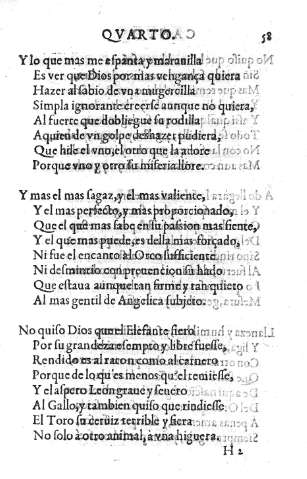 QVARTO. 58
Y lo que mas me espanta y marauilla
Es ver que Dios por mas vengança quiera
Hazer al sabio de vna mugercilla
Simpla ignorante creerse aunque no quiera,
Al fuerte que doblegue su rodilla
A quien de vn golpe deshazer pudiera,
Que hile el vno, el otro que la adore
Porque vno y otro su miseria llore.
Y mas el mas sagaz, y el mas valiente,
Y el mas perfecto, y mas proporcionado,
Que el que mas sabe en su passion mas siente,
Y el que mas puede, es della mas forçado,
Ni fue el encanto al Orco sufficiente
Ni desmintio con preuencion su hado
Que estaua aunque tan firme y tan quieto
Al mas gentil de Angelica subjeto.
No quiso Dios que el Elefante fiero
Por su grandeza esempto y libre fuesse,
Rendido es al raton como al carnero
Porque de lo que es menos que el temiesse,
Y el aspero Leon graue y seuero
Al Gallo, y tambien quiso que rindiesse
El Toro su ceruiz terrible y fiera
No solo à otro animal, à vna higuera.
H 2